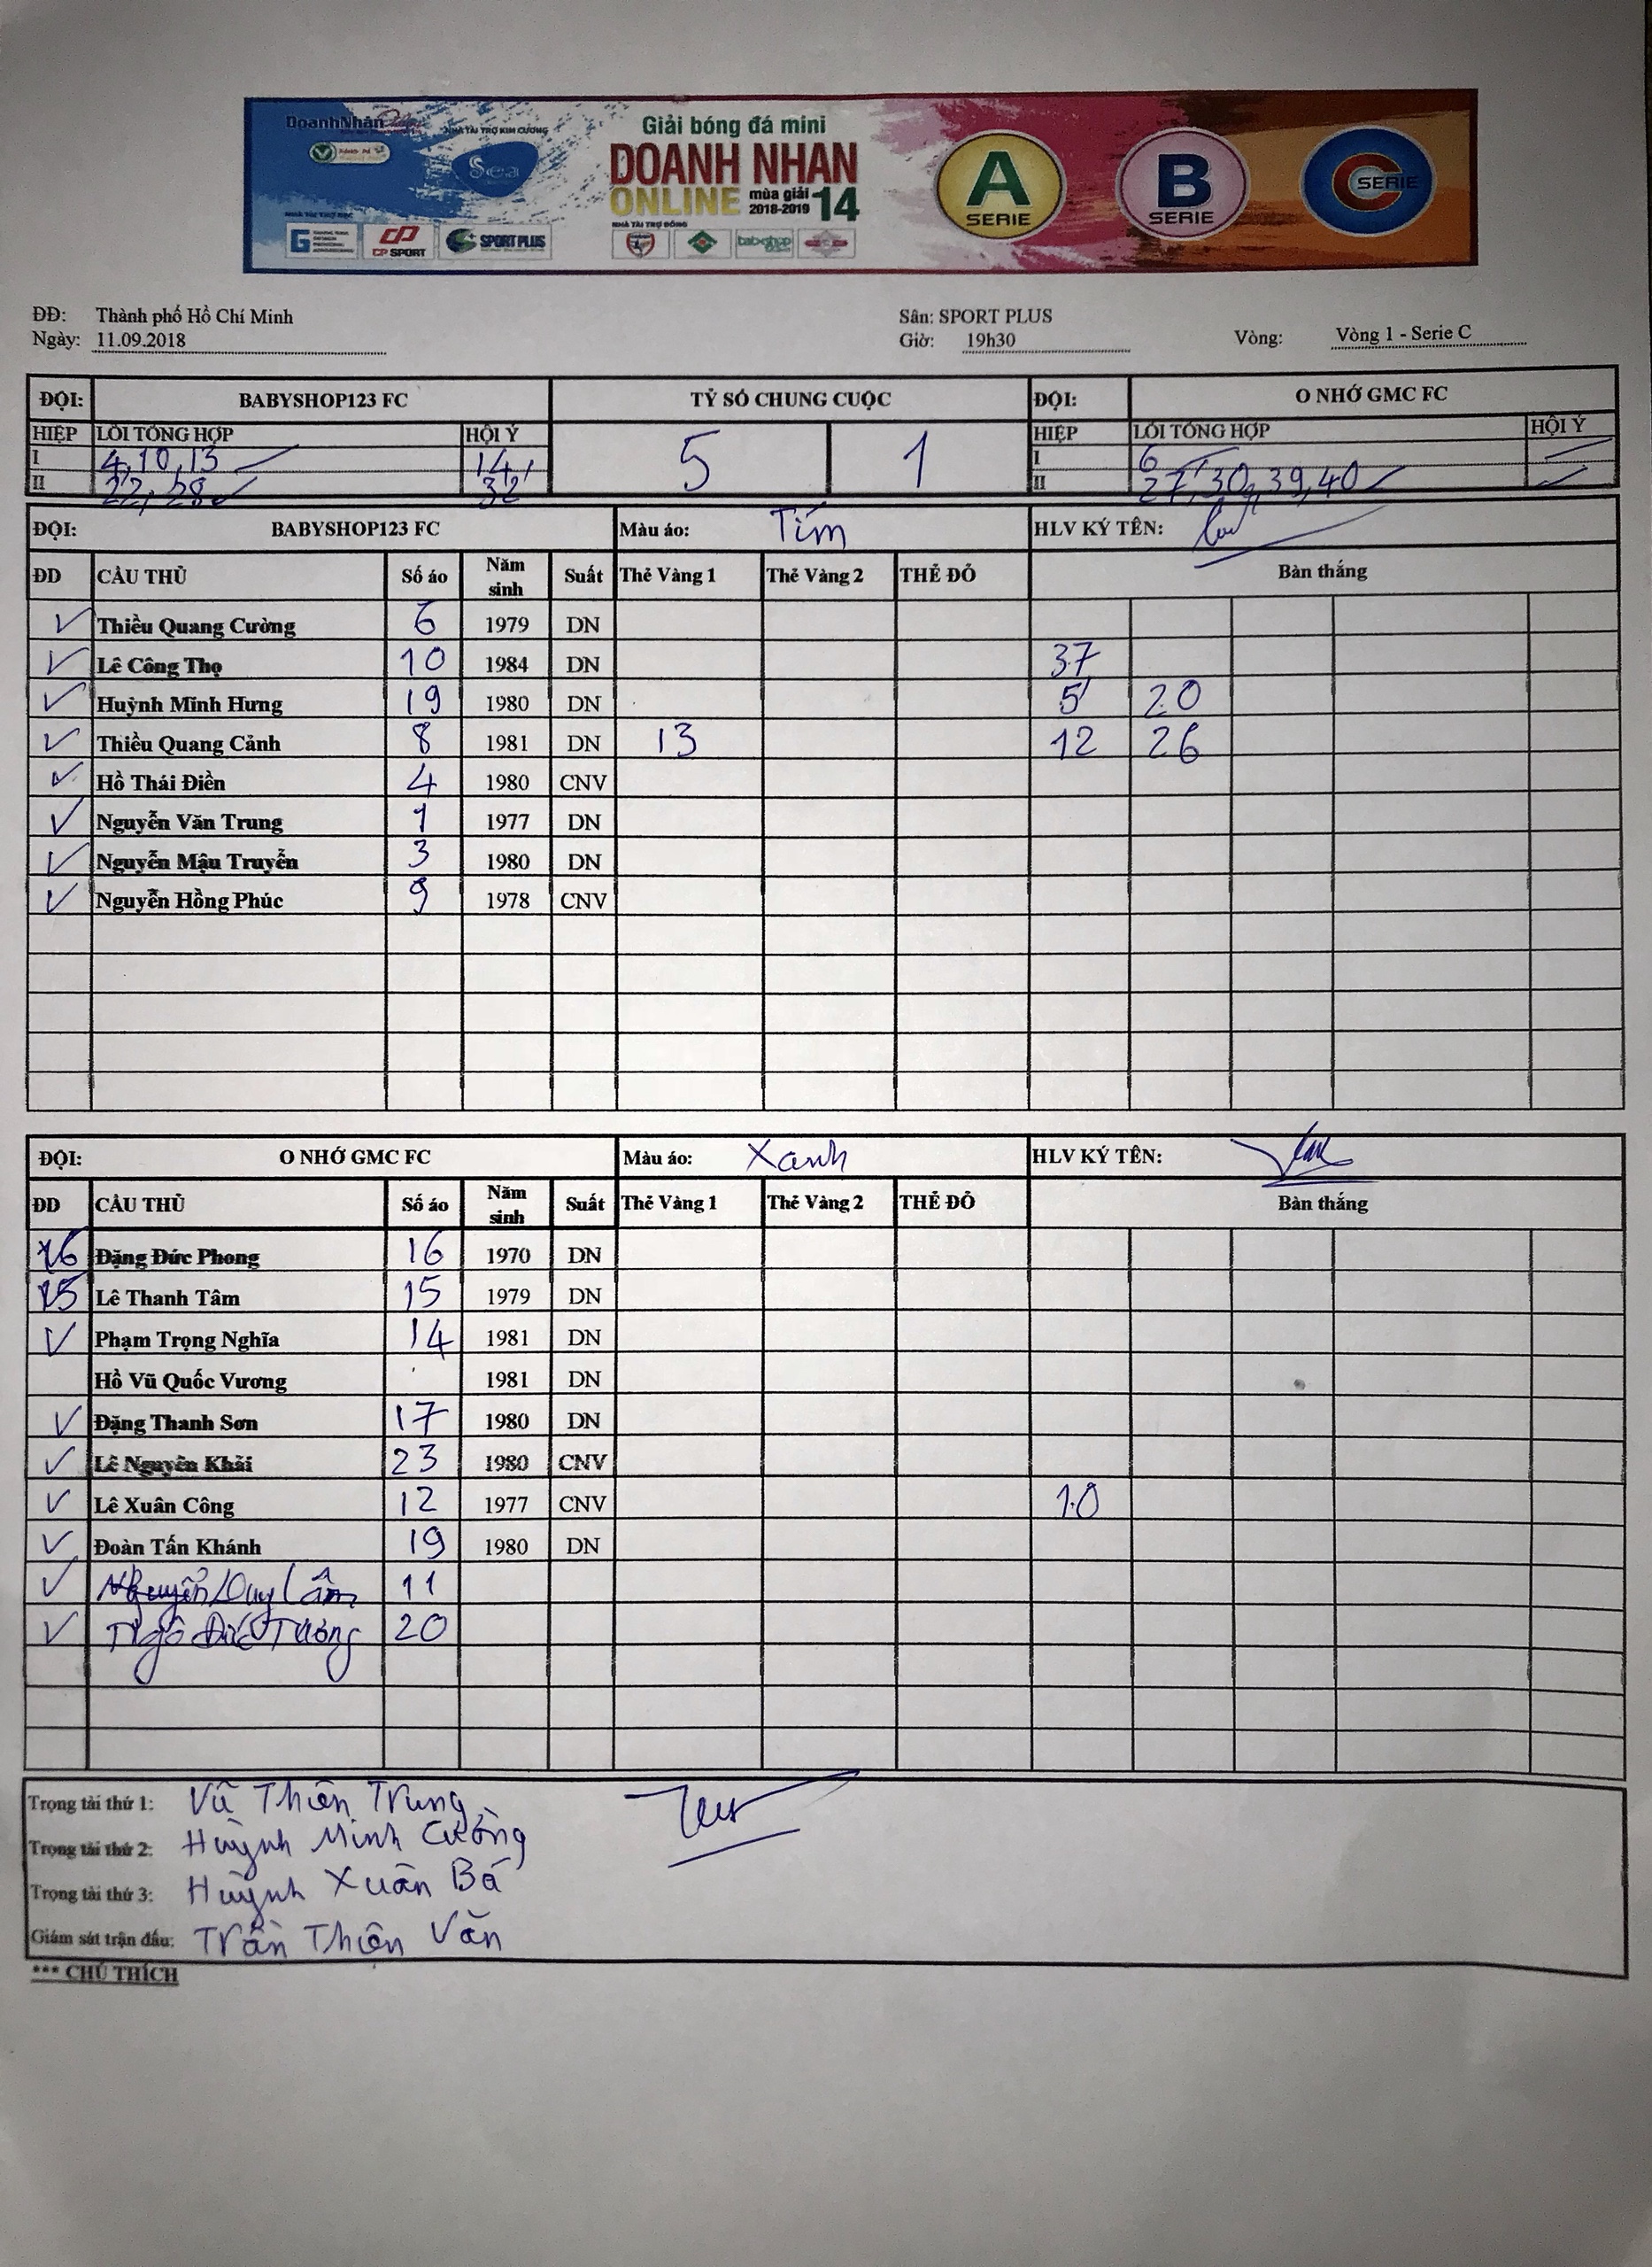 DoanhNhân
NHÀ TÀI TRỢ KIM CƯƠNG
Sea
Giải bóng đá mini
DOANH NHÂN
ONLINE mùa giải 2018-2019 14
A SERIE
B SERIE
C SERIE
NHÀ TÀI TRỢ BẠC
NHÀ TÀI TRỢ ĐỒNG
G CP SPORT SPORT PLUS babyshop
ĐĐ: Thành phố Hồ Chí Minh Sân: SPORT PLUS
Ngày: 11.09.2018 Giờ: 19h30 Vòng: Vòng 1 - Serie C
ĐỘI: BABYSHOP123 FC TỶ SỐ CHUNG CUỘC ĐỘI: O NHỚ GMC FC
HIỆP LỖI TỔNG HỢP HỘI Ý 5 1 HIỆP LỖI TỔNG HỢP HỘI Ý
I 4, 10, 13 14' I 6
II 22, 28 32' II 27, 30, 39, 40
ĐỘI: BABYSHOP123 FC Màu áo: Tím HLV KÝ TÊN:
ĐD CẦU THỦ Số áo Năm sinh Suất Thẻ Vàng 1 Thẻ Vàng 2 THẺ ĐỎ Bàn thắng
✓ Thiều Quang Cường 6 1979 DN
✓ Lê Công Thọ 10 1984 DN 37
✓ Huỳnh Minh Hưng 19 1980 DN 5' 20
✓ Thiều Quang Cảnh 8 1981 DN 13 12 26
✓ Hồ Thái Điền 4 1980 CNV
✓ Nguyễn Văn Trung 1 1977 DN
✓ Nguyễn Mậu Truyễn 3 1980 DN
✓ Nguyễn Hồng Phúc 9 1978 CNV
ĐỘI: O NHỚ GMC FC Màu áo: Xanh HLV KÝ TÊN:
ĐD CẦU THỦ Số áo Năm sinh Suất Thẻ Vàng 1 Thẻ Vàng 2 THẺ ĐỎ Bàn thắng
16 Đặng Đức Phong 16 1970 DN
15 Lê Thanh Tâm 15 1979 DN
✓ Phạm Trọng Nghĩa 14 1981 DN
Hồ Vũ Quốc Vương 1981 DN
✓ Đặng Thanh Sơn 17 1980 DN
✓ Lê Nguyên Khải 23 1980 CNV
✓ Lê Xuân Công 12 1977 CNV 10
✓ Đoàn Tấn Khánh 19 1980 DN
✓ Nguyễn Duy Lâm 11
✓ Ngô Đức Tường 20
Trọng tài thứ 1: Vũ Thiên Trung
Trọng tài thứ 2: Huỳnh Minh Cường
Trọng tài thứ 3: Huỳnh Xuân Bá
Giám sát trận đấu: Trần Thiện Văn
*** CHÚ THÍCH